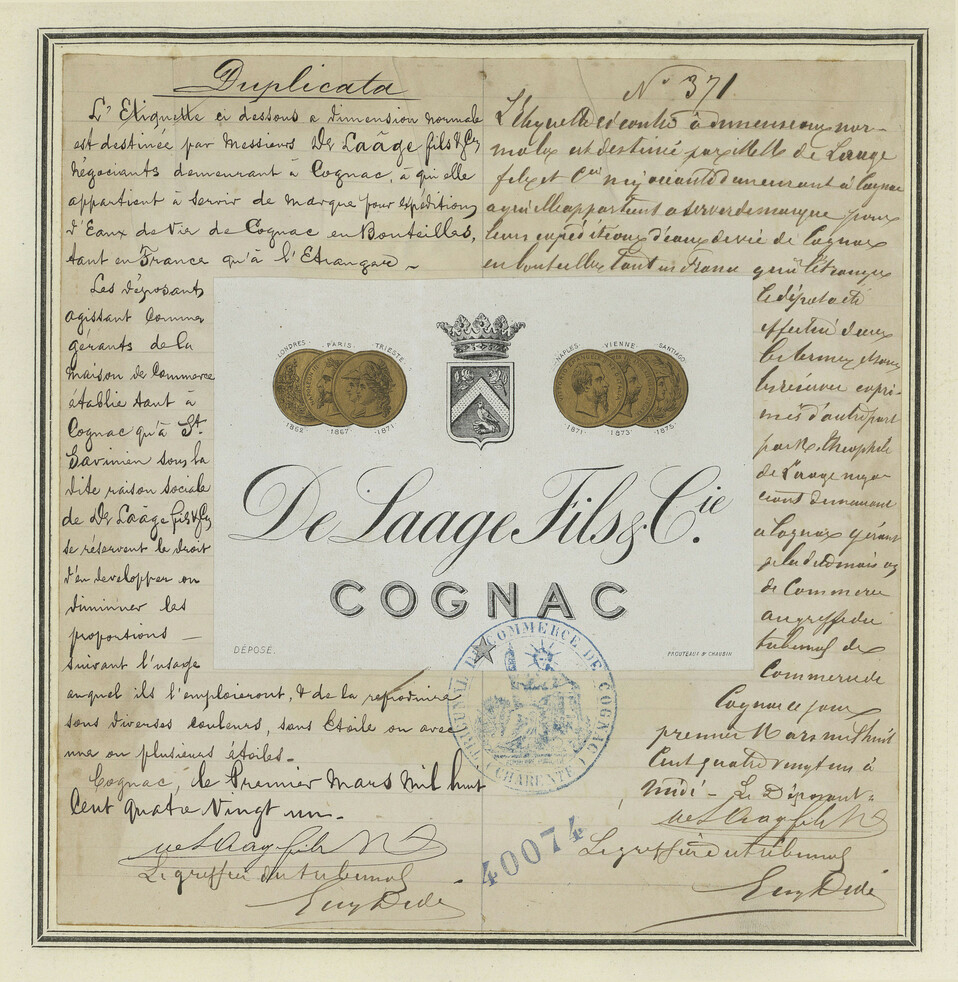 Duplicata
L'Etiquette ci dessous a dimension normale
est destinée par Messieurs De Laâge fils & Cie
Négociants demeurant à Cognac, à qui elle
appartient à servir de Marque pour expéditions
d'Eaux de Vie de Cognac en Bouteilles,
tant en France qu'à l'Etranger
Les déposants
agissant comme
gérants de la
Maison de Commerce
établie tant à
Cognac qu'à St.
Savinien sous la
dite raison sociale
de De Laâge fils & Cie
se réservent le droit
d'en developper ou
diminuer les
proportions —
suivant l'usage
auquel ils l'emploieront, & de la reproduire
sous diverses couleurs, sans Etoile ou avec
une ou plusieurs étoiles.
Cognac, le Premier Mars Mil huit
Cent quatre Vingt un.
Le greffier du tribunal
N° 371
L'Etiquette ci contre à dimensions nor-
males est destinée par MM de Laage
fils et Cie négociants demeurant à Cognac
a qui elle appartient a servir de marque pour
leurs expéditions d'eaux de vie de Cognac
en bouteilles tant en France qu'à l'étranger
le dépôt a été
effectué dans
les termes et sous
les réserves expri-
mées d'autre part
par M. Théophile
de Laage négo-
ciant demeurant
a Cognac gérant
de Commerce
au greffe du
tribunal de
Commerce de
Cognac ce jour
premier Mars mil huit
Cent quatre vingt un à
Midi - Le Déposant
Le greffier du tribunal
LONDRES PARIS TRIESTE
1862 1867 1871
NAPLES VIENNE SANTIAGO
1871 1873 1875
De Laage Fils & Cie.
COGNAC
DÉPOSÉ.
PROUTEAUX & CHAUBIN
TRIBUNAL DE COMMERCE DE COGNAC
(CHARENTE)
40074